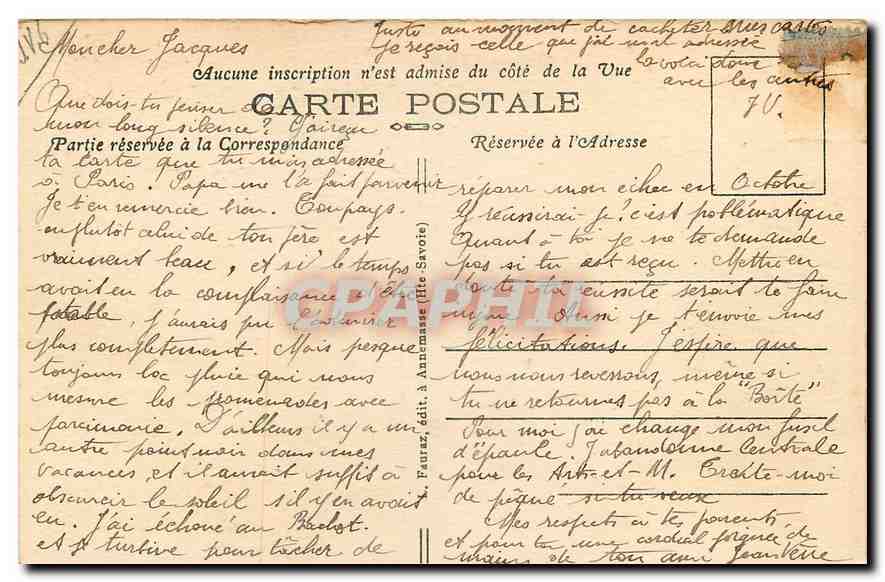 Mon cher Jacques
Juste au moment de cacheter mes cartes
je reçois celle que j'ai mal adressée
la voilà donc
avec les autres
J V.
Aucune inscription n'est admise du côté de la Vue
CARTE POSTALE
Partie réservée à la Correspondance
Réservée à l'Adresse
Que dois-tu penser de
mon long silence? J'ai reçu
ta carte que tu m'as adressée
à Paris. Papa me l'a fait parvenir
Je t'en remercie bien. Ton pays.
ou plutôt celui de ton père est
vraiment beau, et si le temps
avait eu la complaisance d'être
potable, j'aurais pu l'admirer
plus complètement. Mais presque
toujours la pluie qui nous
mesure les promenades avec
parcimonie. D'ailleurs il y a un
autre point noir dans mes
vacances, et il aurait suffit à
obscurcir le soleil s'il y en avait
eu. J'ai échoué au Bachot.
et turbine pour tâcher de
réparer mon échec en Octobre
Y réussirai-je? c'est problématique
Quant à toi je ne te demande
pas si tu est reçu. Mettre en
doute ta réussite serait te faire
injure. Aussi je t'envoie mes
félicitations. J'espère que
nous nous reverrons, même si
tu ne retournes pas à la "Boîte"
Pour moi j'ai changé mon fusil
d'épaule. J'abandonne Centrale
pour les Arts-et-M. Traite-moi
de pigne si tu veux
Mes respects à tes parents,
et pour toi une cordial poignée de
mains de ton ami
. Fauraz, édit. à Annemasse (Hte-Savoie)
CPAPHIL